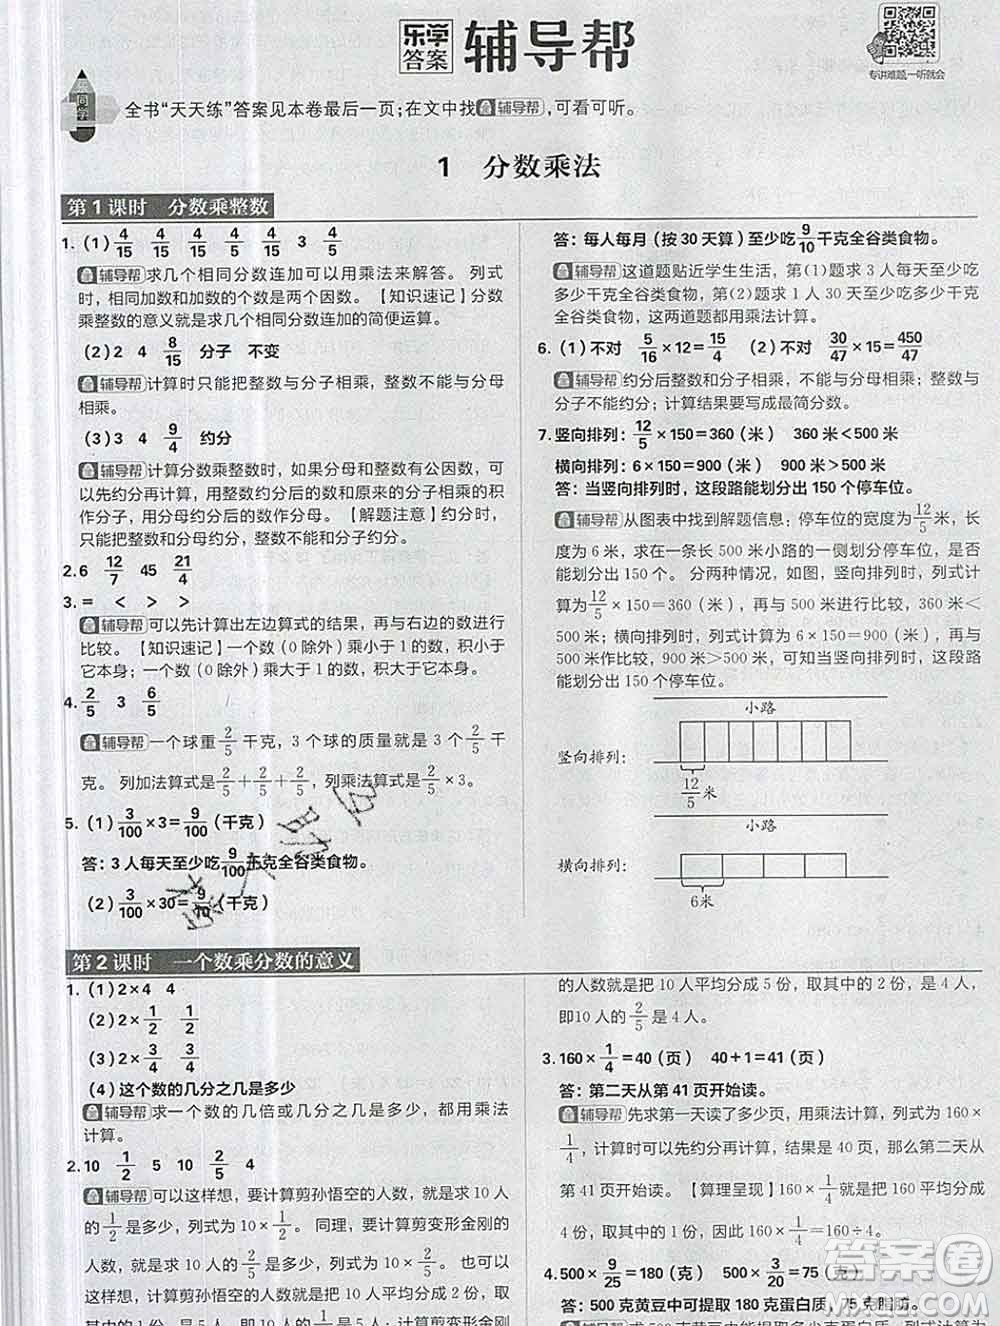 乐学
答案
辅导帮
专讲难题,一听就会
乐同学
全书“天天练”答案见本卷最后一页;在文中找 辅导帮,可看可听。
1 分数乘法
第1课时 分数乘整数
1.(1)4/15 4/15 4/15 4/15 4/15 3 4/5
辅导帮 求几个相同分数连加可以用乘法来解答。列式
时,相同加数和加数的个数是两个因数。【知识速记】分数
乘整数的意义就是求几个相同分数连加的简便运算。
(2)2 4 8/15 分子 不变
辅导帮 计算时只能把整数与分子相乘,整数不能与分母
相乘。
(3)3 4 9/4 约分
辅导帮 计算分数乘整数时,如果分母和整数有公因数,可
以先约分再计算,用整数约分后的数和原来的分子相乘的积
作分子,用分母约分后的数作分母。【解题注意】约分时,
只能把整数和分母约分,整数不能和分子约分。
2.6 12/7 45 21/4
3.= < > >
辅导帮 可以先计算出左边算式的结果,再与右边的数进行
比较。【知识速记】一个数(0除外)乘小于1的数,积小于
它本身;一个数(0除外)乘大于1的数,积大于它本身。
4.2/5 3 6/5
辅导帮 一个球重2/5千克,3个球的质量就是3个2/5千
克。列加法算式是2/5+2/5+2/5,列乘法算式是2/5×3。
5.(1)3/100×3=9/100(千克)
答:3人每天至少吃9/100千克全谷类食物。
(2)3/100×30=9/10(千克)
答:每人每月(按30天算)至少吃9/10千克全谷类食物。
辅导帮 这道题贴近学生生活,第(1)题求3人每天至少吃
多少千克全谷类食物,第(2)题求1人30天至少吃多少千克
全谷类食物,这两道题都用乘法计算。
6.(1)不对 5/16×12=15/4 (2)不对 30/47×15=450/47
辅导帮 约分后整数和分子相乘,不能与分母相乘;整数与
分子不能约分;计算结果要写成最简分数。
7.竖向排列:12/5×150=360(米) 360米<500米
横向排列:6×150=900(米) 900米>500米
答:当竖向排列时,这段路能划分出150个停车位。
辅导帮 从图表中找到解题信息:停车位的宽度为12/5米,长
度为6米,求在一条长500米小路的一侧划分停车位,是否
能划分出150个。分两种情况,如图,竖向排列时,列式计
算为12/5×150=360(米),再与500米进行比较,360米<
500米;横向排列时,列式计算为6×150=900(米),再与
500米作比较,900米>500米,可知当竖向排列时,这段路
能划分出150个停车位。
小路
竖向排列:
12/5米
小路
横向排列:
6米
第2课时 一个数乘分数的意义
1.(1)2×4 4
(2)2×1/2 1/2
(3)2×3/4 3/4
(4)这个数的几分之几是多少
辅导帮 求一个数的几倍或几分之几是多少,都用乘法
计算。
2.10 1/2 5 10 2/5 4
辅导帮 可以这样想,要计算剪孙悟空的人数,就是求10人
的1/2是多少,列式为10×1/2。同理,要计算剪变形金刚的
人数,就是求10人的2/5是多少,列式为10×2/5。也可以这
样想,
的人数就是把10人平均分成5份,取其中的2份,是4人,
即10人的2/5是4人。
3.160×1/4=40(页) 40+1=41(页)
答:第二天从第41页开始读。
辅导帮 先求第一天读了多少页,用乘法计算,列式为160×
1/4,计算时可以先约分再计算,结果是40页,那么第二天从
第41页开始读。【算理呈现】160×1/4就是把160平均分成
4份,取其中的1份,因此160×1/4=160÷4。
4.500×9/25=180(克) 500×3/20=75(克)
答:500克黄豆中可提取180克蛋白质,75克脂肪。
答案圈